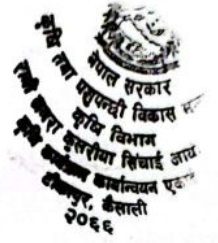 नेपाल सरकार
कृषि तथा पशुपन्छी विकास
कृषि विभाग
रानी जमरा कुलरीया सिंचाई
कृषि कार्यक्रम कार्यान्वयन एका
टीकापुर, कैलाली
२०६६